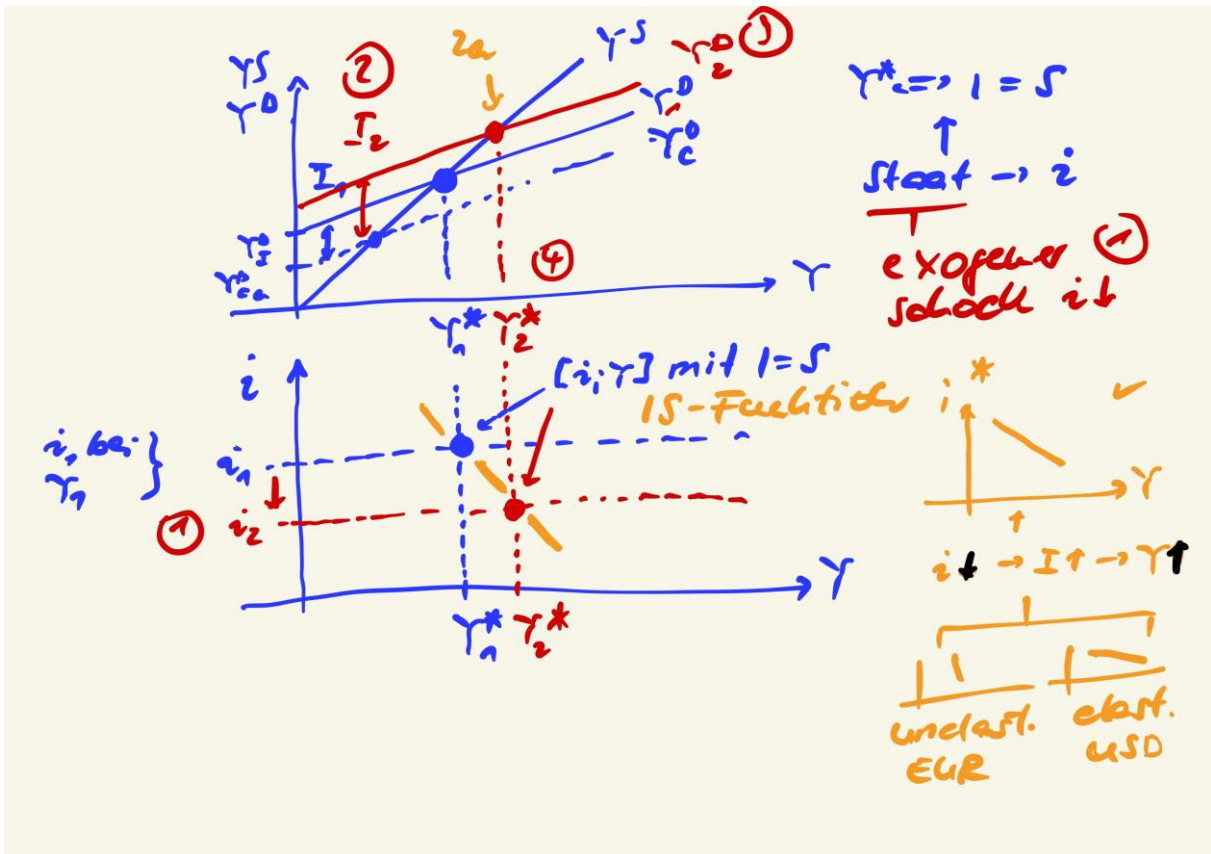 2a
Y^S
Y_2^D ③
Y^S
Y^D
②
I_2
I_1
Y_1^D
=Y_C^D
Y_I^D
Y_Ca^D
④
Y
Y_1^* Y_2^*
Y_1^* => I = S
↑
Staat -> i
exogener ①
schock i↓
i
[i,Y] mit I = S
IS-Funktion
i_1 bei
Y_1 }
i_1
↓
① i_2
Y
Y_1^* Y_2^*
i^* ✓
Y
↑
i↓ -> I↑ -> Y↑
unelast. elast.
EUR USD